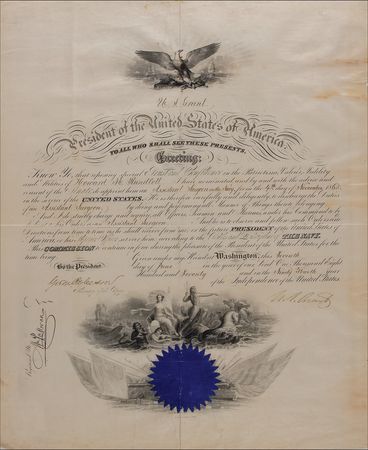 U. S. Grant
President of the United States of America,
TO ALL WHO SHALL SEE THESE PRESENTS,
Greeting:
Know Ye, that reposing special Trust and Confidence in the Patriotism, Valor, Fidelity
and Abilities of Howard M. I have nominated and by and with the advice and
consent of the Senate do appoint him Assistant Surgeon in the Navy, from the of November 186
in the service of the UNITED STATES. He is therefore carefully and diligently to discharge the duties
of Assistant Surgeon by doing and performing all manner of things thereto belonging.
And I do strictly charge and require all Officers, Seamen and Marines under his Command to be
obedient to his orders as Assistant Surgeon And he is to observe and follow such orders and
Directions from time to time as he shall receive from me, or the future PRESIDENT of the United States of
America, or his Superior Officer set over him, according to the of THE NAVY.
This COMMISSION to continue in force during the pleasure of the President of the United States for the
time being.
Given under my Hand at Washington, this Seventh
By the President
day of June in the year of our Lord One Thousand Eight
Hundred and Seventy and in the Ninety Fourth year
of the Independence of the United States.
Secretary of the Navy
U. S. Grant